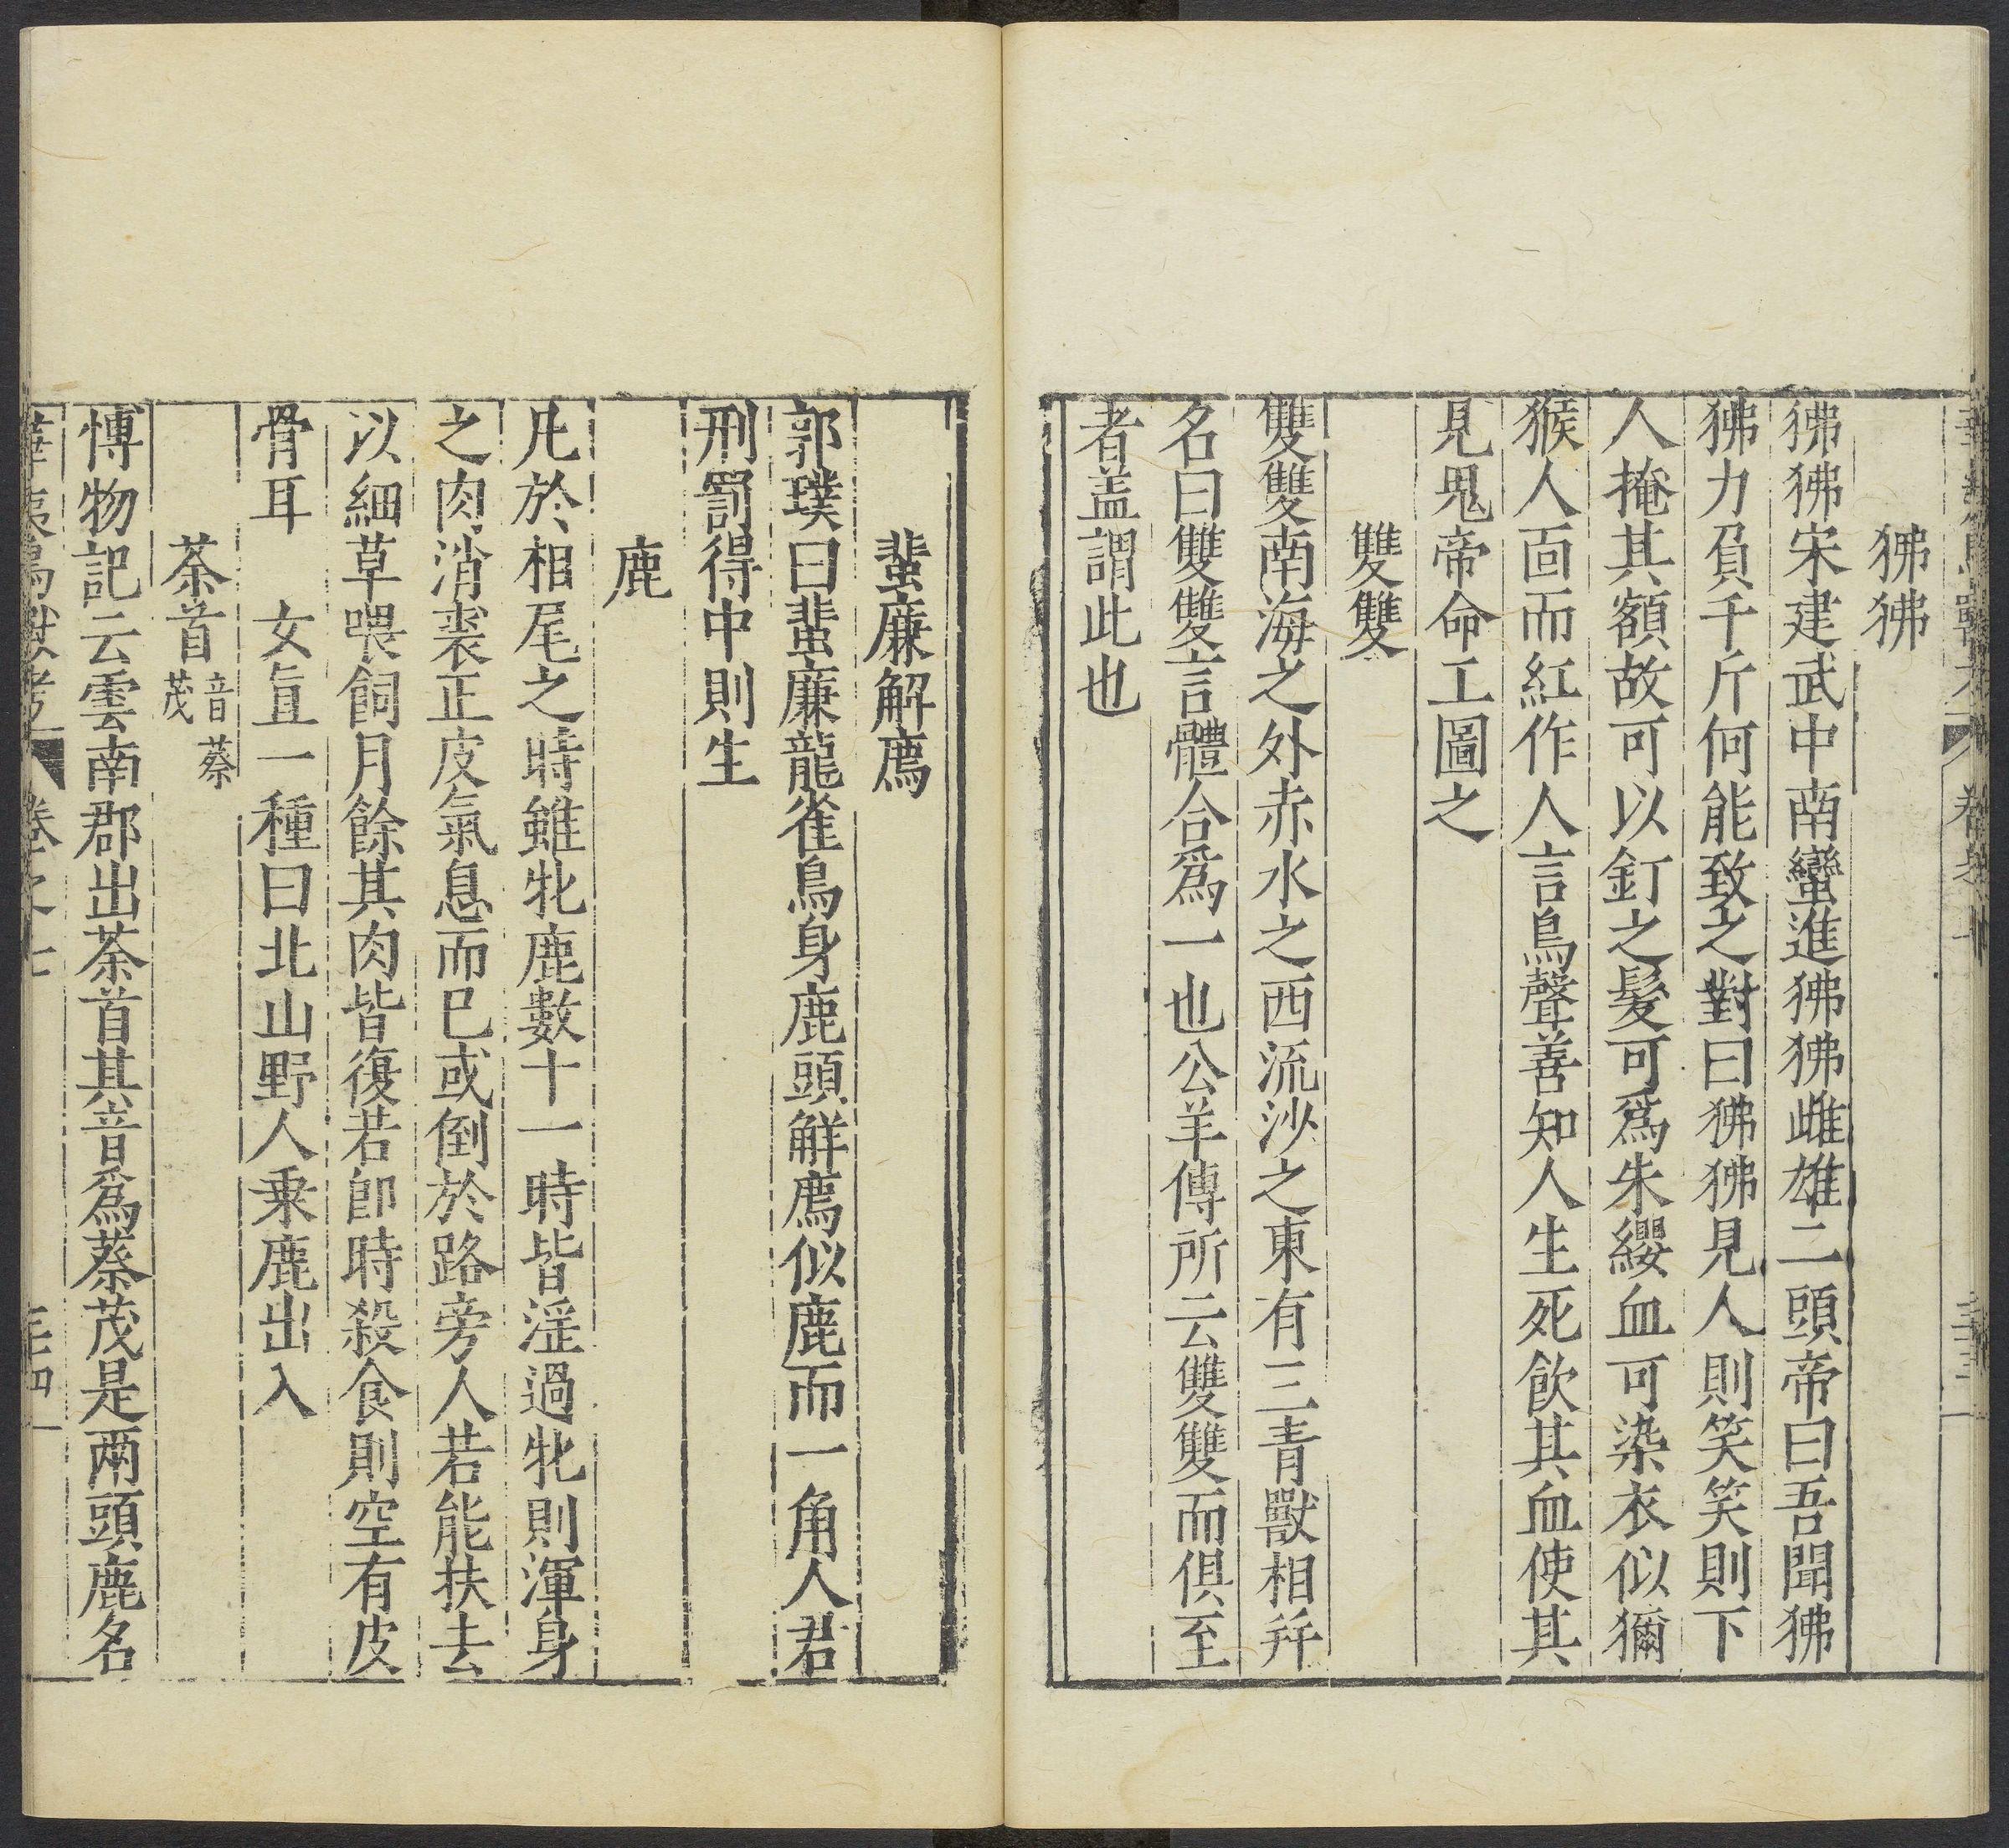 狒狒
狒狒宋建武中南蠻進狒狒雌雄二頭帝曰吾聞狒
狒力負千斤何能致之對曰狒狒見人則笑笑則下
人掩其額故可以釘之髮可爲朱纓血可染衣似獼
猴人面而紅作人言鳥聲善知人生死飲其血使其
見鬼帝命工圖之
雙雙
雙雙南海之外赤水之西流沙之東有三青獸相并
名曰雙雙言體合爲一也公羊傳所云雙雙而俱至
者盖謂此也
蜚廉解廌
郭璞曰蜚廉龍雀鳥身鹿頭觧廌似鹿而一角人君
刑罰得中則生
鹿
凡於相尾之時雖牝鹿數十一時皆淫過牝則渾身
之肉消裘正皮氣息而已或倒於路旁人若能扶去
以細草喂飼月餘其肉皆復若卽時殺食則空有皮
骨耳 女直一種曰北山野人乗鹿出入
茶首音蔡茂
博物記云雲南郡出茶首其音爲蔡茂是兩頭鹿名
華夷鳥獸考 卷之七 三四